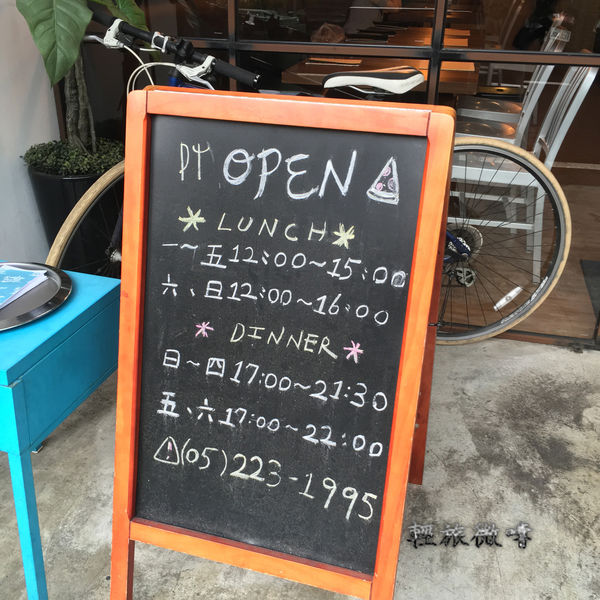 PT OPEN
LUNCH
一~五12:00~15:00
六、日12:00~16:00
DINNER
日~四17:00~21:30
五、六17:00~22:00
(05)223-1995
輕旅微嚐